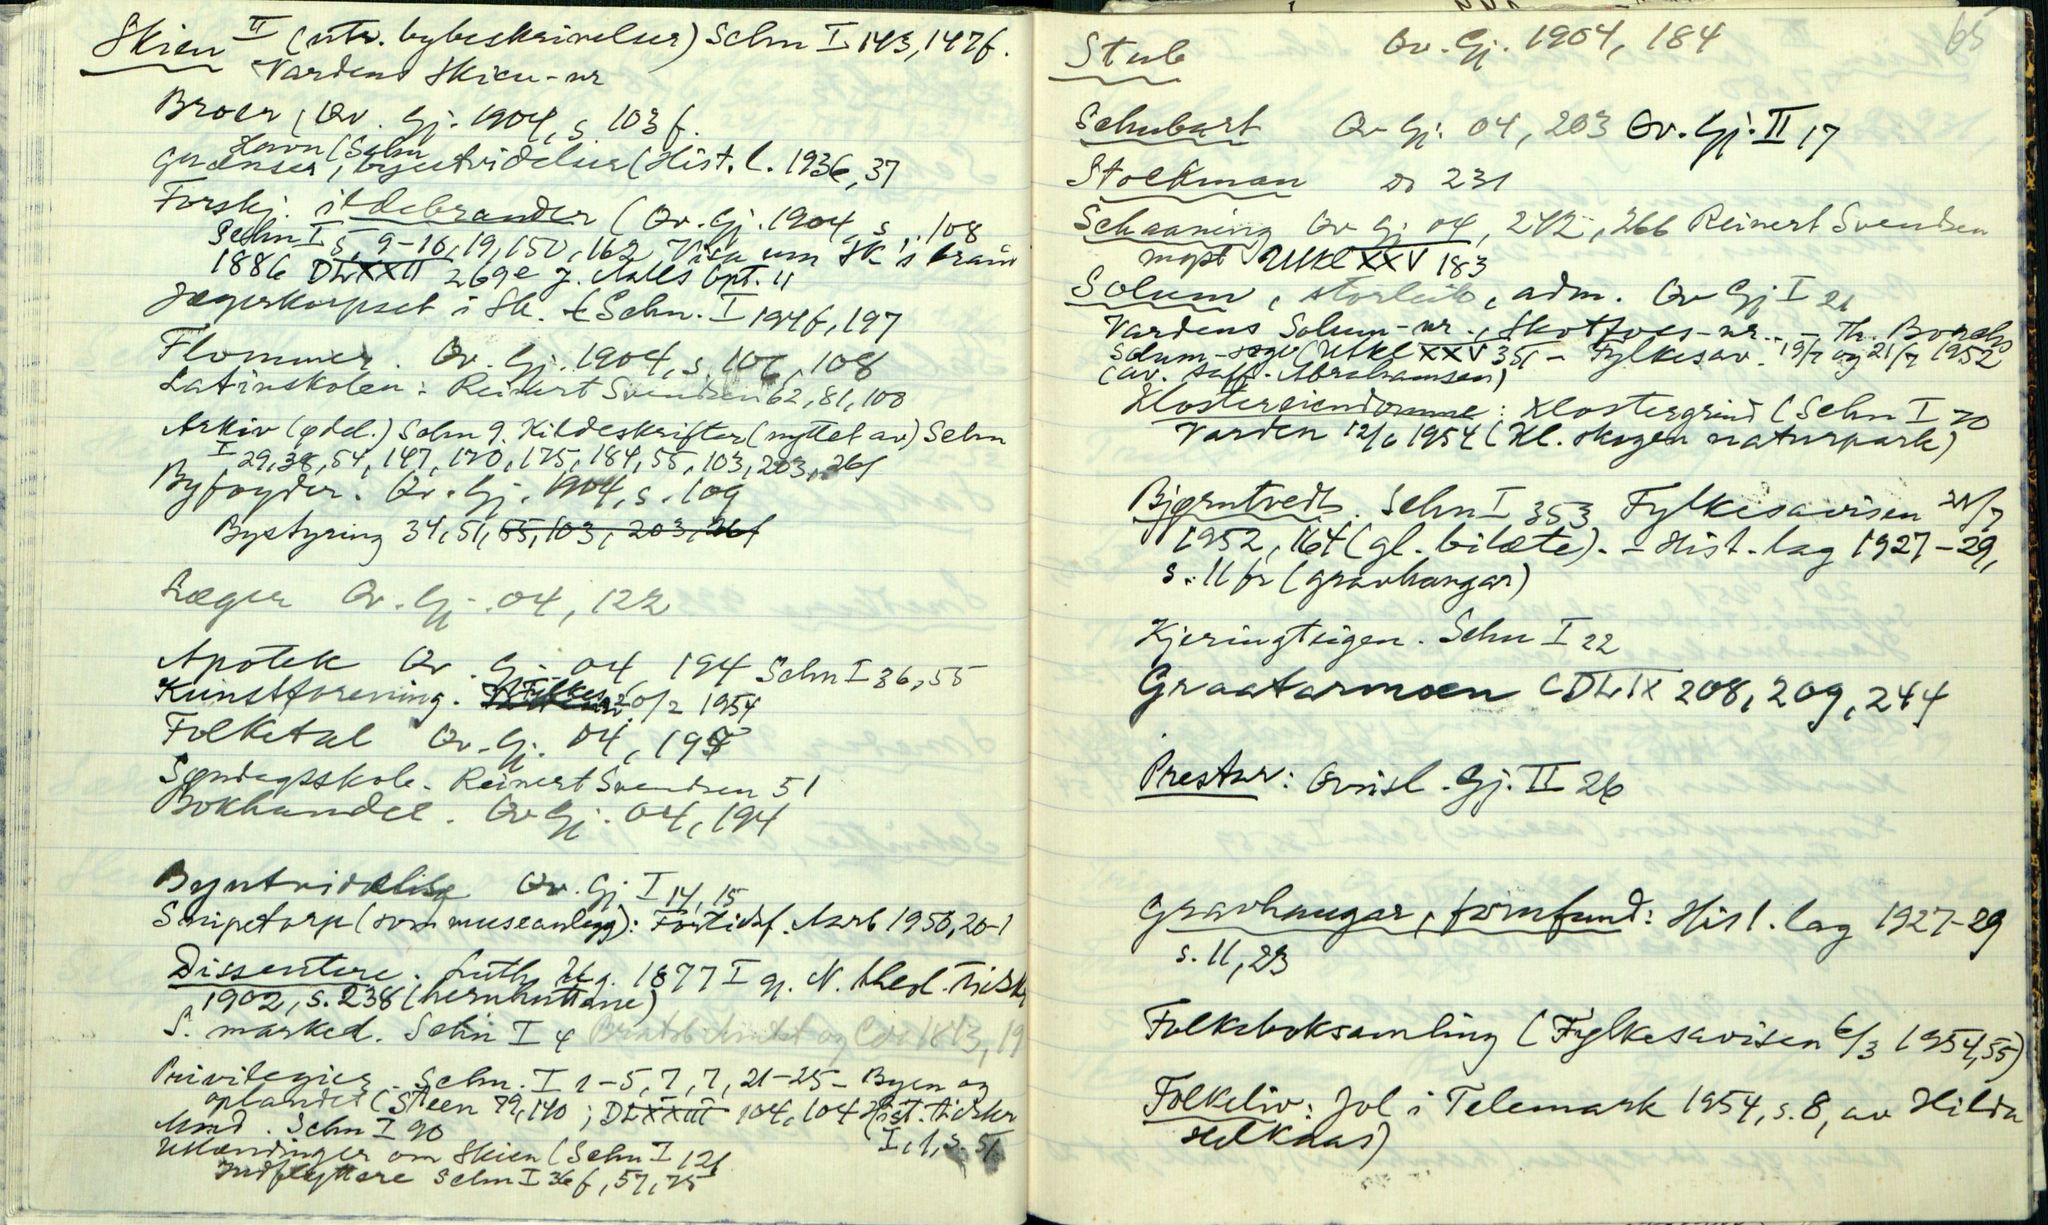 Skien II (utv. bybeskrivelser) Schn I 143, 147 f.
Vardens Skien-nr
Broer, Qv. Gj. 1904, s 103 f.
Havn (Schn
Grænser, byutvidelser (Hist. l. 1936, 37
Forskj. ildebrander (Qv. Gj. 1904, s. 108
Schn I 5, 9-10, 19, 150, 162 Visa um Sk's brann
1886 DLXXII 269e J. Aalls Opt. 11
Jægerkorpset i Sk. Schn. I 194 f, 197
Flommer. Qv. Gj. 1904, s. 106, 108
Latinskolen: Reinert Svendsen 62, 81, 100
Arkiv (ødel.) Schn 9. Kildeskrifter (nyttet av) Schn
I 29, 38, 54, 147, 170, 175, 184, 55, 103, 203, 261
Byfogder. Qv. Gj. 1904, s. 109
Bystyring 34, 51, 55, 103, 203, 261
Læger Qv. Gj. 04, 122
Apotek Qv. Gj. 04 194 Schn I 36, 55
Kunstforening. 20/2 1954
Folketal Qv. Gj. 04, 198
Søndagsskole. Reinert Svendsen 51
Bokhandel. Qv Gj. 04, 194
Byutvidelse Qv. Gj I 14, 15
Snipetorp (som museanlegg): Fortidsf. Aarb 1950, 20-1
Dissentere. Luth. Ug. 1877 I g. N. theol. tidskr
1902, s. 238 (hernhuttane)
S. marked. Schn I 4 Bratsb Amt og 1813, 19
Privilegier. Schn. I 1-5, 7, 7, 21-25 - Byen og
oplandet (Steen 79, 140; DLXXIII 104, 104 Hist. tidskr
I, 1, s. 51
Mød. Schn I 90
Utlendinger om Skien (Schn I 121
Indflyttere Schn I 36 f, 57, 75
65
Stub Qv. Gj. 1904, 184
Schubart Qv Gj. 04, 203 Qv. Gj. II 17
Stockman Do 231
Schaaning Qv Gj 04, 242, 266 Reinert Svendsen
mspt Utkl XXV 183
Solum, storleik, adm. Qv Gj I 21
Vardens Solum-nr., Skotfoss-nr.. - Th. Borchs
Solum-soga (Utkl XXV 351 - Fylkesav. 19/7 og 21/7 1952
(av. Saff. Abrahamsen)
Klostereiendomme: Klostergrind (Schn I 20
Varden 12/6 1954 (Kl. skogen naturpark)
Bjørntvedt. Schn I 353 Fylkesavisen 21/7
1952, 164 (gl. bilæte). - Hist. lag 1927-29,
s. 11 fr (gravhaugar)
Kjeringteigen. Schn I 22
Graatarmoen CDLIX 208, 209, 244
Prestar: Qvisl. Gj. II 26
Gravhaugar, fornfund: Hist. lag 1927-29
s. 11, 23
Folkeboksamling (Fylkesavisen 6/3 1954, 55)
Folkeliv: Jol i Telemark 1954, s. 8, av Hilda
Holkaas)